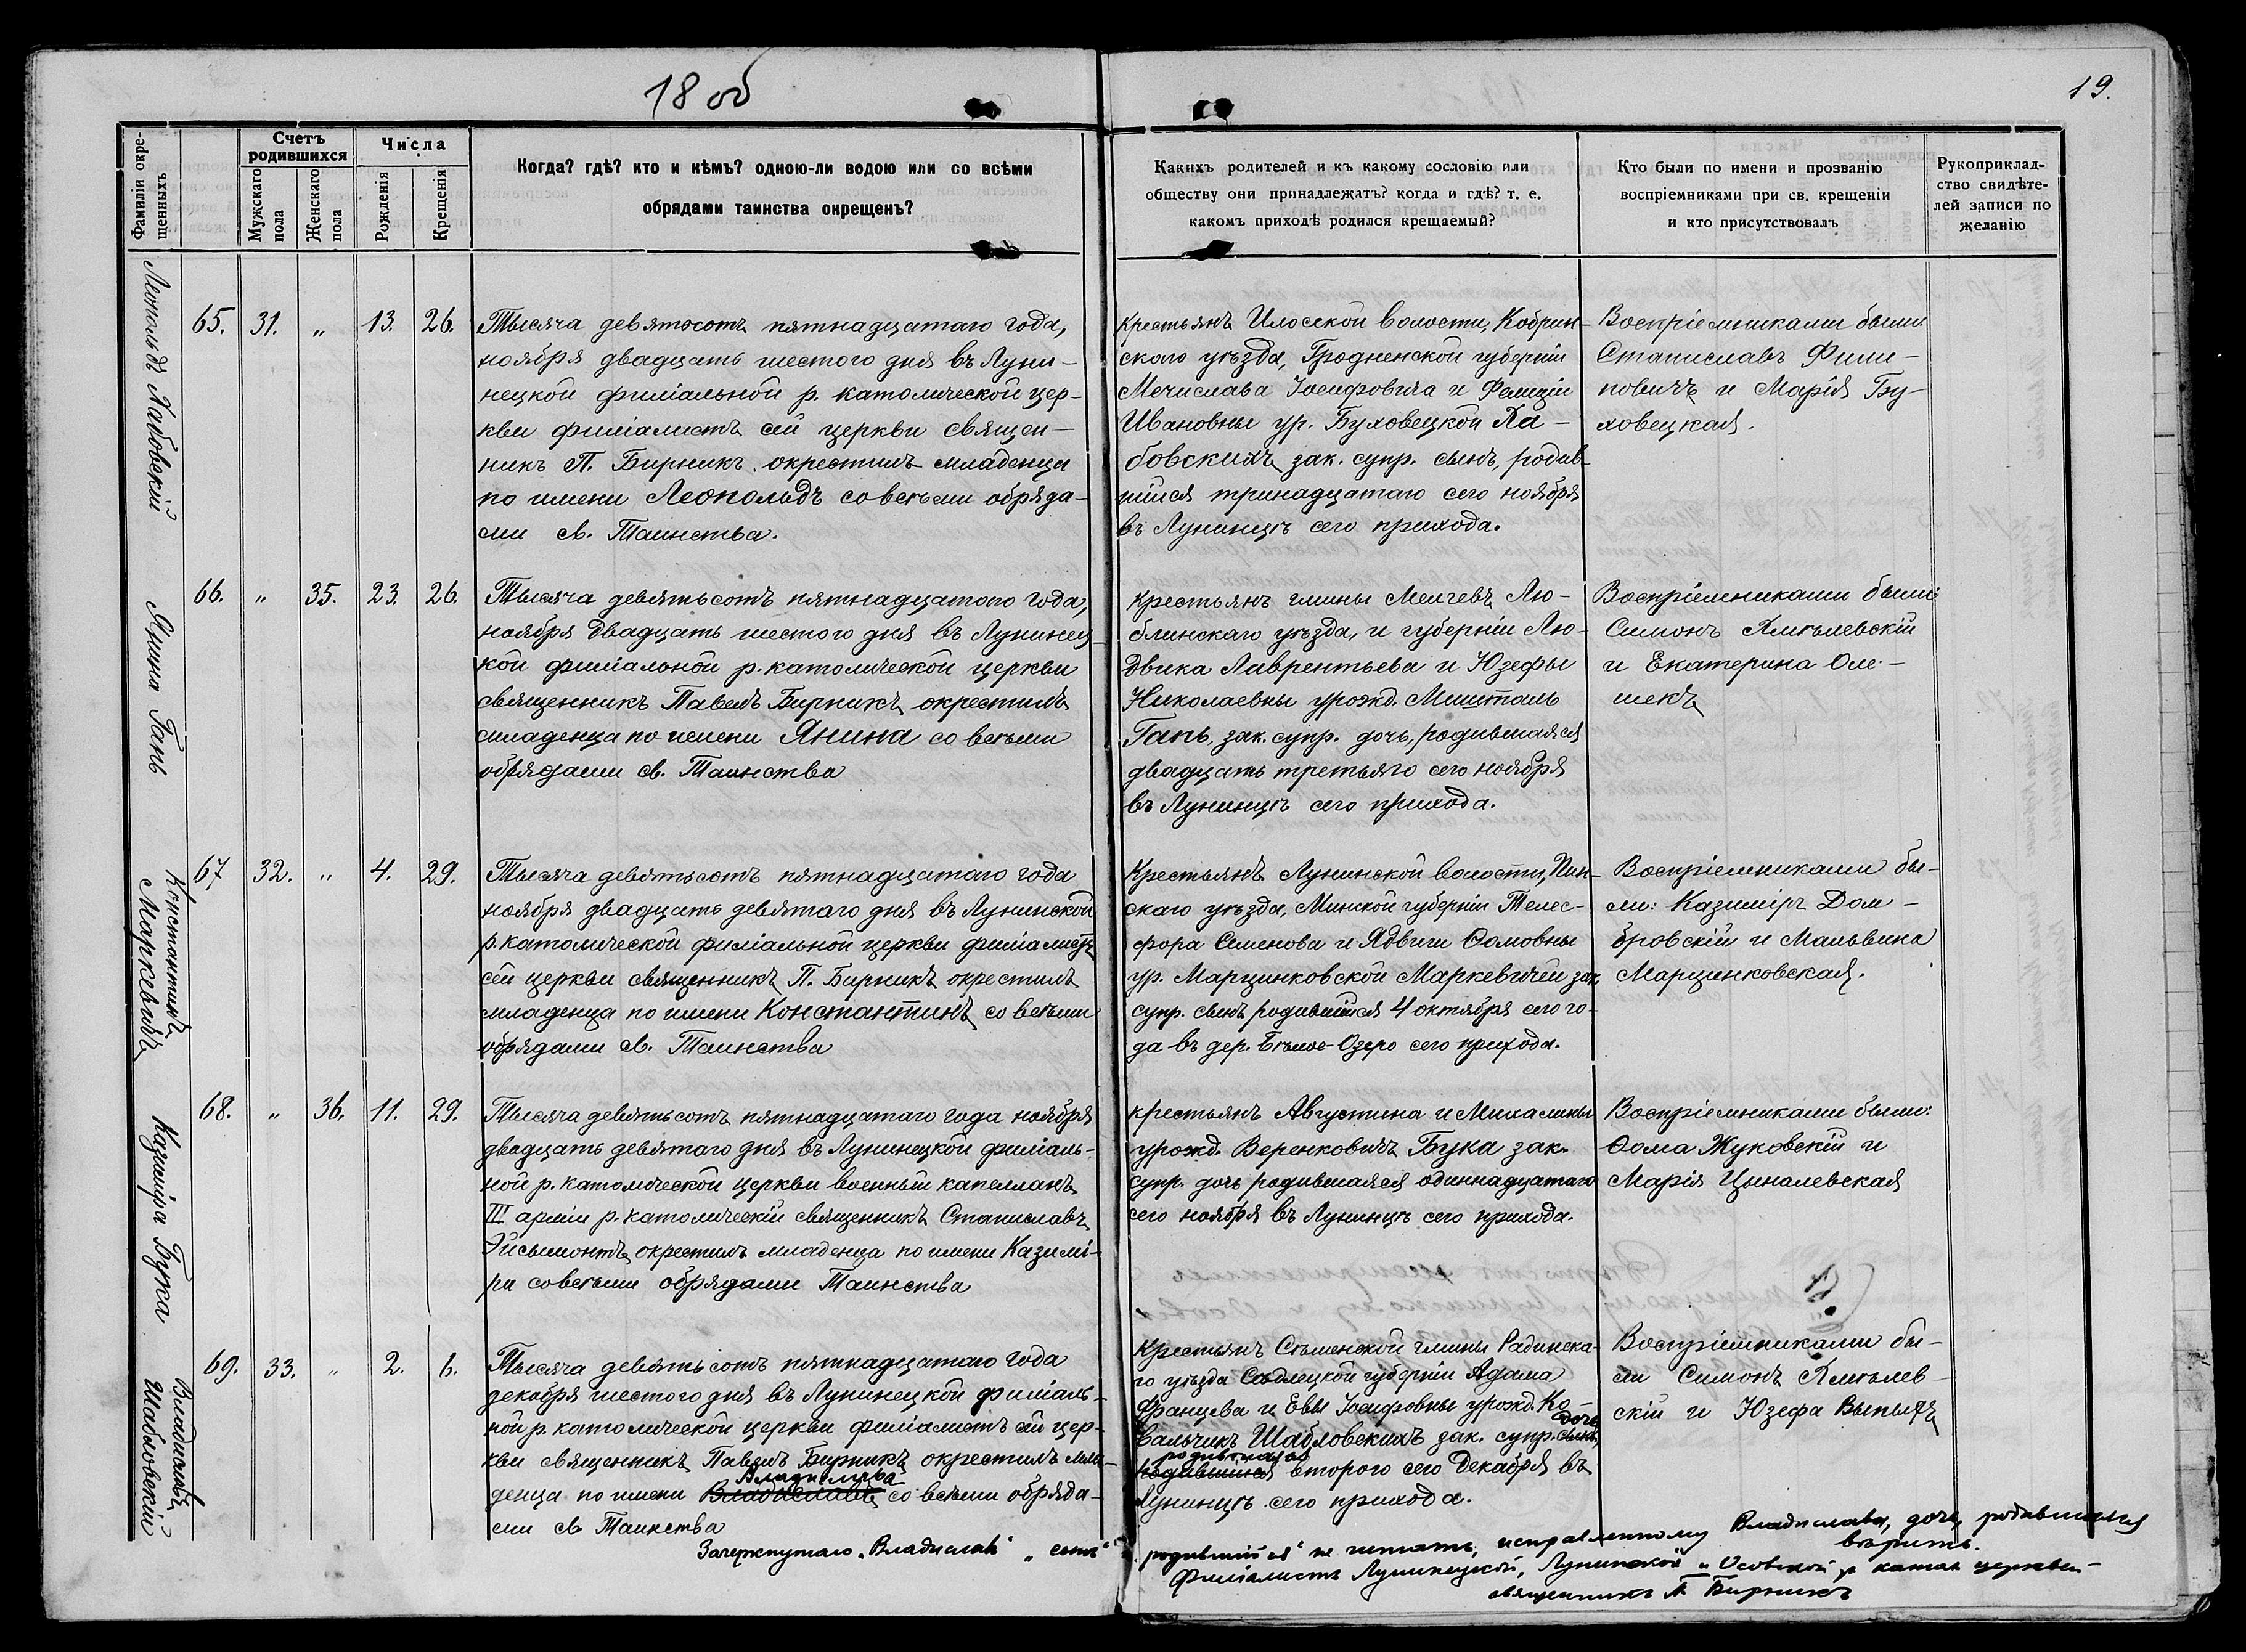 18 об
19.
Фамиліи окре-
щенныхъ
Счетъ
родившихся
Мужскаго
пола
Женскаго
пола
Числа
Рожденія
Крещенія
Когда? гдѣ? кто и кѣмъ? одною-ли водою или со всѣми
обрядами таинства окрещенъ?
Какихъ родителей и къ какому сословію или
обществу они принадлежатъ? когда и гдѣ? т. е.
какомъ приходѣ родился крещаемый?
Кто были по имени и прозванію
воспріемниками при св. крещеніи
и кто присутствовалъ
Рукоприклад-
ство свидѣте-
лей записи по
желанію
Леопольдъ Лабовскій
65. 31. „ 13. 26.
Тысяча девятьсотъ пятнадцатаго года,
ноября двадцать шестого дня въ Луни-
нецкой филіальной р. католической цер-
кви филіалистъ сей церкви священ-
никъ П. Бирникъ окрестилъ младенца
по имени Леопольдъ со всѣми обряда-
ми св. Таинства.
Крестьянъ Илоской волости, Кобрин-
скаго уѣзда, Гродненской губерніи
Мечислава Іосифовича и Фелиціи
Ивановны ур. Буховецкой Ла-
бовскихъ зак. супр. сынъ, родив-
шійся тринадцатаго сего ноября
въ Лунинцѣ сего прихода.
Воспріемниками были
Станиславъ Фили-
повичъ и Марія Бу-
ховецкая.
Янина Гань
66. „ 35. 23. 26.
Тысяча девятьсотъ пятнадцатого года,
ноября двадцать шестого дня въ Лунинец-
кой филіальной р. католической церкви
священникъ Павелъ Бирникъ окрестилъ
младенца по имени Янина со всѣми
обрядами св. Таинства
крестьянъ гмины Мелгевъ Лю-
блинскаго уѣзда, и губерніи Лю-
двика Лаврентьева и Юзефы
Николаевны урожд. Мишталь
Гань, зак. супр. дочь, родившаяся
двадцать третьяго сего ноября
въ Лунинцѣ сего прихода.
Воспріемниками были
Симонъ Хмѣлевскій
и Екатерина Оле-
шекъ
Константинъ
Маркевичъ
67 32. „ 4. 29.
Тысяча девятьсотъ пятнадцатаго года
ноября двадцать девятаго дня въ Лунинской
р. католической филіальной церкви филіалистъ
сей церкви священникъ П. Бирникъ окрестилъ
младенца по имени Константинъ со всѣми
обрядами св. Таинства
Крестьянъ Лунинской волости, Пин-
скаго уѣзда, Минской губерніи Телес-
фора Семенова и Ядвиги Ѳомовны
ур. Марцинковской Маркевичей зак.
супр. сынъ родившійся 4 октября сего го-
да въ дер. Бѣлое-Озеро сего прихода.
Воспріемниками бы-
ли: Казиміръ Дом-
бровскій и Мальвина
Марцинковская.
Казиміра Бука
68. „ 36. 11. 29.
Тысяча девятьсотъ пятнадцатаго года ноября
двадцать девятаго дня въ Лунинецкой филіаль-
ной р. католической церкви военный капелланъ
III арміи р. католическій священникъ Станиславъ
Эйсымонтъ окрестилъ младенца по имени Казимі-
ра со всѣми обрядами Таинства
крестьянъ Августина и Михалины
урожд. Веренковичъ Бука зак.
супр. дочь родившаяся одиннадцатаго
сего ноября въ Лунинцѣ сего прихода.
Воспріемниками были:
Ѳома Жуковскій и
Марія Цыналевская
Владиславъ
Шабловскій
69. 33. „ 2. 6.
Тысяча девятьсотъ пятнадцатаго года
декабря шестого дня въ Лунинецкой филіаль-
ной р. католической церкви филіалистъ сей цер-
кви священникъ Павелъ Бирникъ окрестилъ мла-
Владислава
денца по имени Владиславъ со всѣми обряда-
ми св Таинства
Крестьянъ Сѣменской гмины Радинска-
го уѣзда Сѣдлецкой губерніи Адама
Францева и Евы Іосифовны урожд. Ко-
дочь
вальчикъ Шабловскихъ зак. супр. сынъ,
родившаяся
родившійся второго сего Декабря въ
Лунинцѣ сего прихода.
Воспріемниками бы-
ли Симонъ Хмѣлев-
скій и Юзефа
Зачеркнутаго „Владиславъ" „сынъ" „родившійся" не читать, исправленному Владислава, дочь, родившаяся
вѣрить.
Филіалистъ Лунинецкой, Лунинской и Осовской р катол церквей
священникъ П Бирникъ